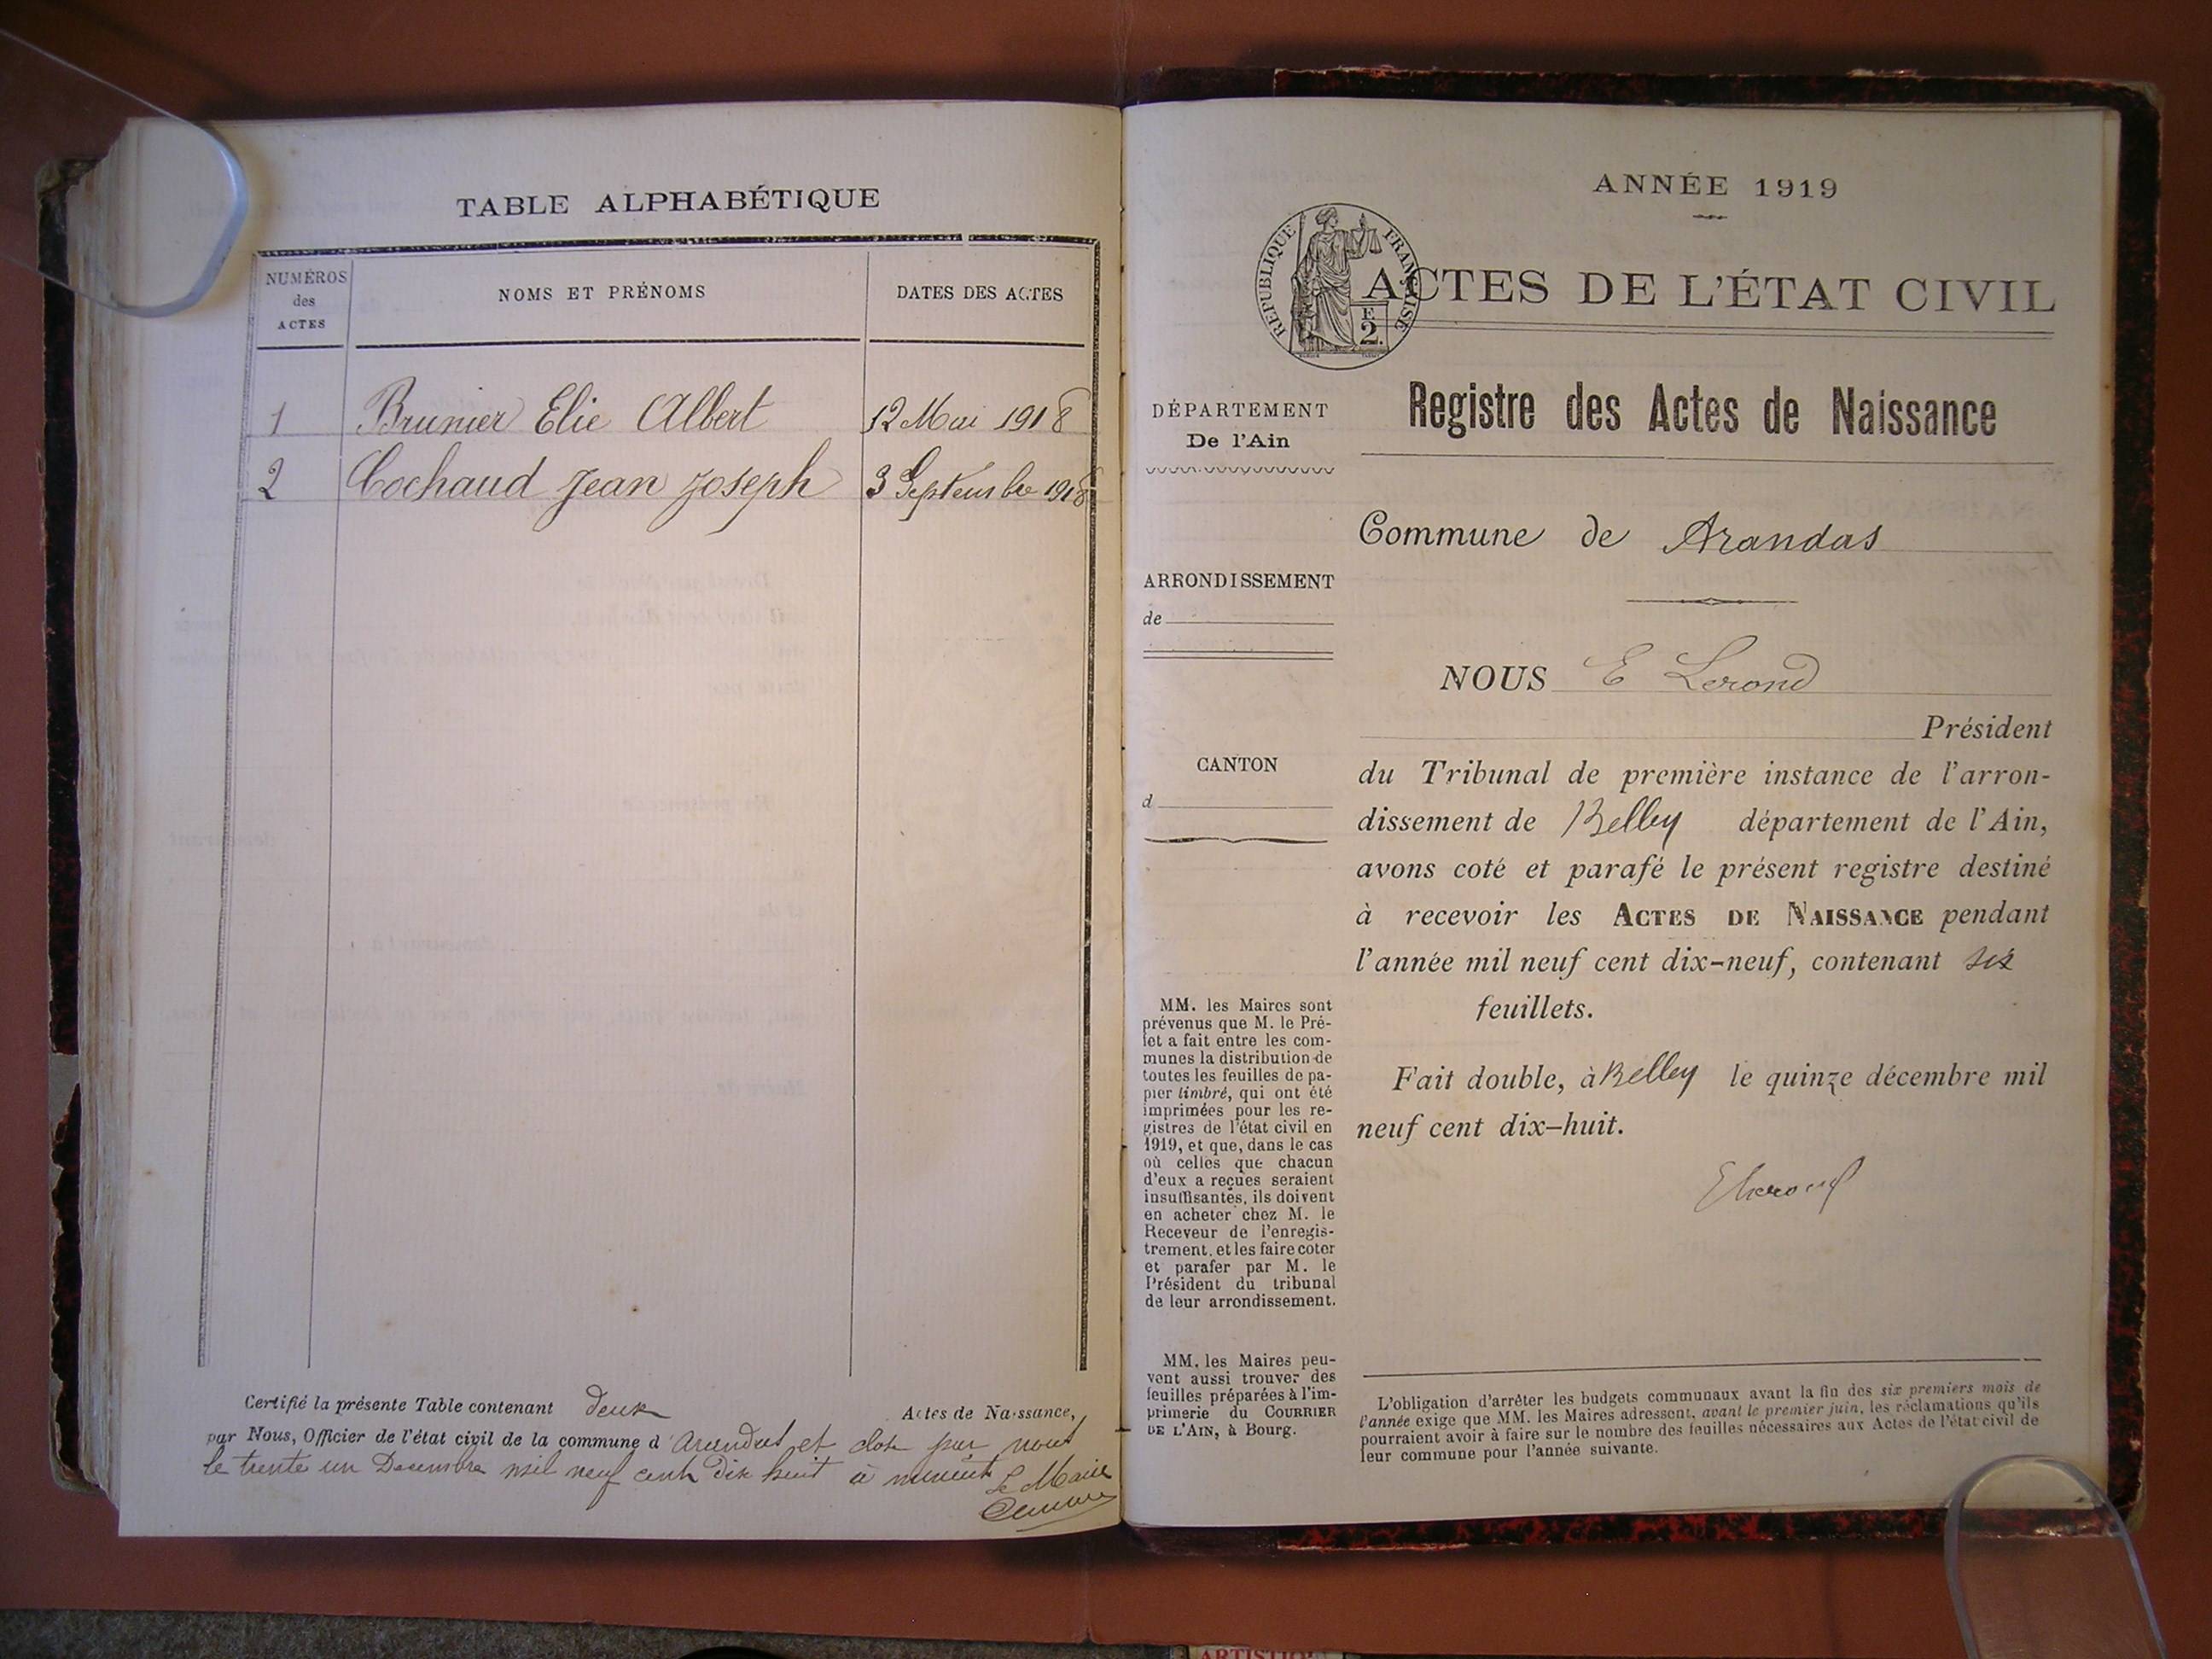 TABLE ALPHABÉTIQUE
NUMÉROS
des
ACTES
NOMS ET PRÉNOMS
DATES DES ACTES
1 Brunier Elie Albert 12 Mai 1918
2 Cochaud Jean Joseph 3 Septembre 1918
Certifié la présente Table contenant deux Actes de Naissance,
par Nous, Officier de l'état civil de la commune d'Arandas et clos par nous
le trente un Decembre mil neuf cent dix huit à minuit
Le Maire
ANNÉE 1919
RÉPUBLIQUE FRANÇAISE
E
2.
ACTES DE L'ÉTAT CIVIL
Registre des Actes de Naissance
DÉPARTEMENT
De l'Ain
Commune de Arandas
ARRONDISSEMENT
de
CANTON
d
NOUS E Lerond
Président
du Tribunal de première instance de l'arron-
dissement de Belley département de l'Ain,
avons coté et parafé le présent registre destiné
à recevoir les ACTES DE NAISSANCE pendant
l'année mil neuf cent dix-neuf, contenant six
feuillets.
Fait double, à Belley le quinze décembre mil
neuf cent dix-huit.
ELerond
MM. les Maires sont
prévenus que M. le Pré-
fet a fait entre les com-
munes la distribution de
toutes les feuilles de pa-
pier timbré, qui ont été
imprimées pour les re-
gistres de l'état civil en
1919, et que, dans le cas
où celles que chacun
d'eux a reçues seraient
insuffisantes, ils doivent
en acheter chez M. le
Receveur de l'enregis-
trement, et les faire coter
et parafer par M. le
Président du tribunal
de leur arrondissement.
MM. les Maires peu-
vent aussi trouver des
feuilles préparées à l'im-
primerie du COURRIER
DE L'AIN, à Bourg.
L'obligation d'arrêter les budgets communaux avant la fin des six premiers mois de
l'année exige que MM. les Maires adressent, avant le premier juin, les réclamations qu'ils
pourraient avoir à faire sur le nombre des feuilles nécessaires aux Actes de l'état civil de
leur commune pour l'année suivante.